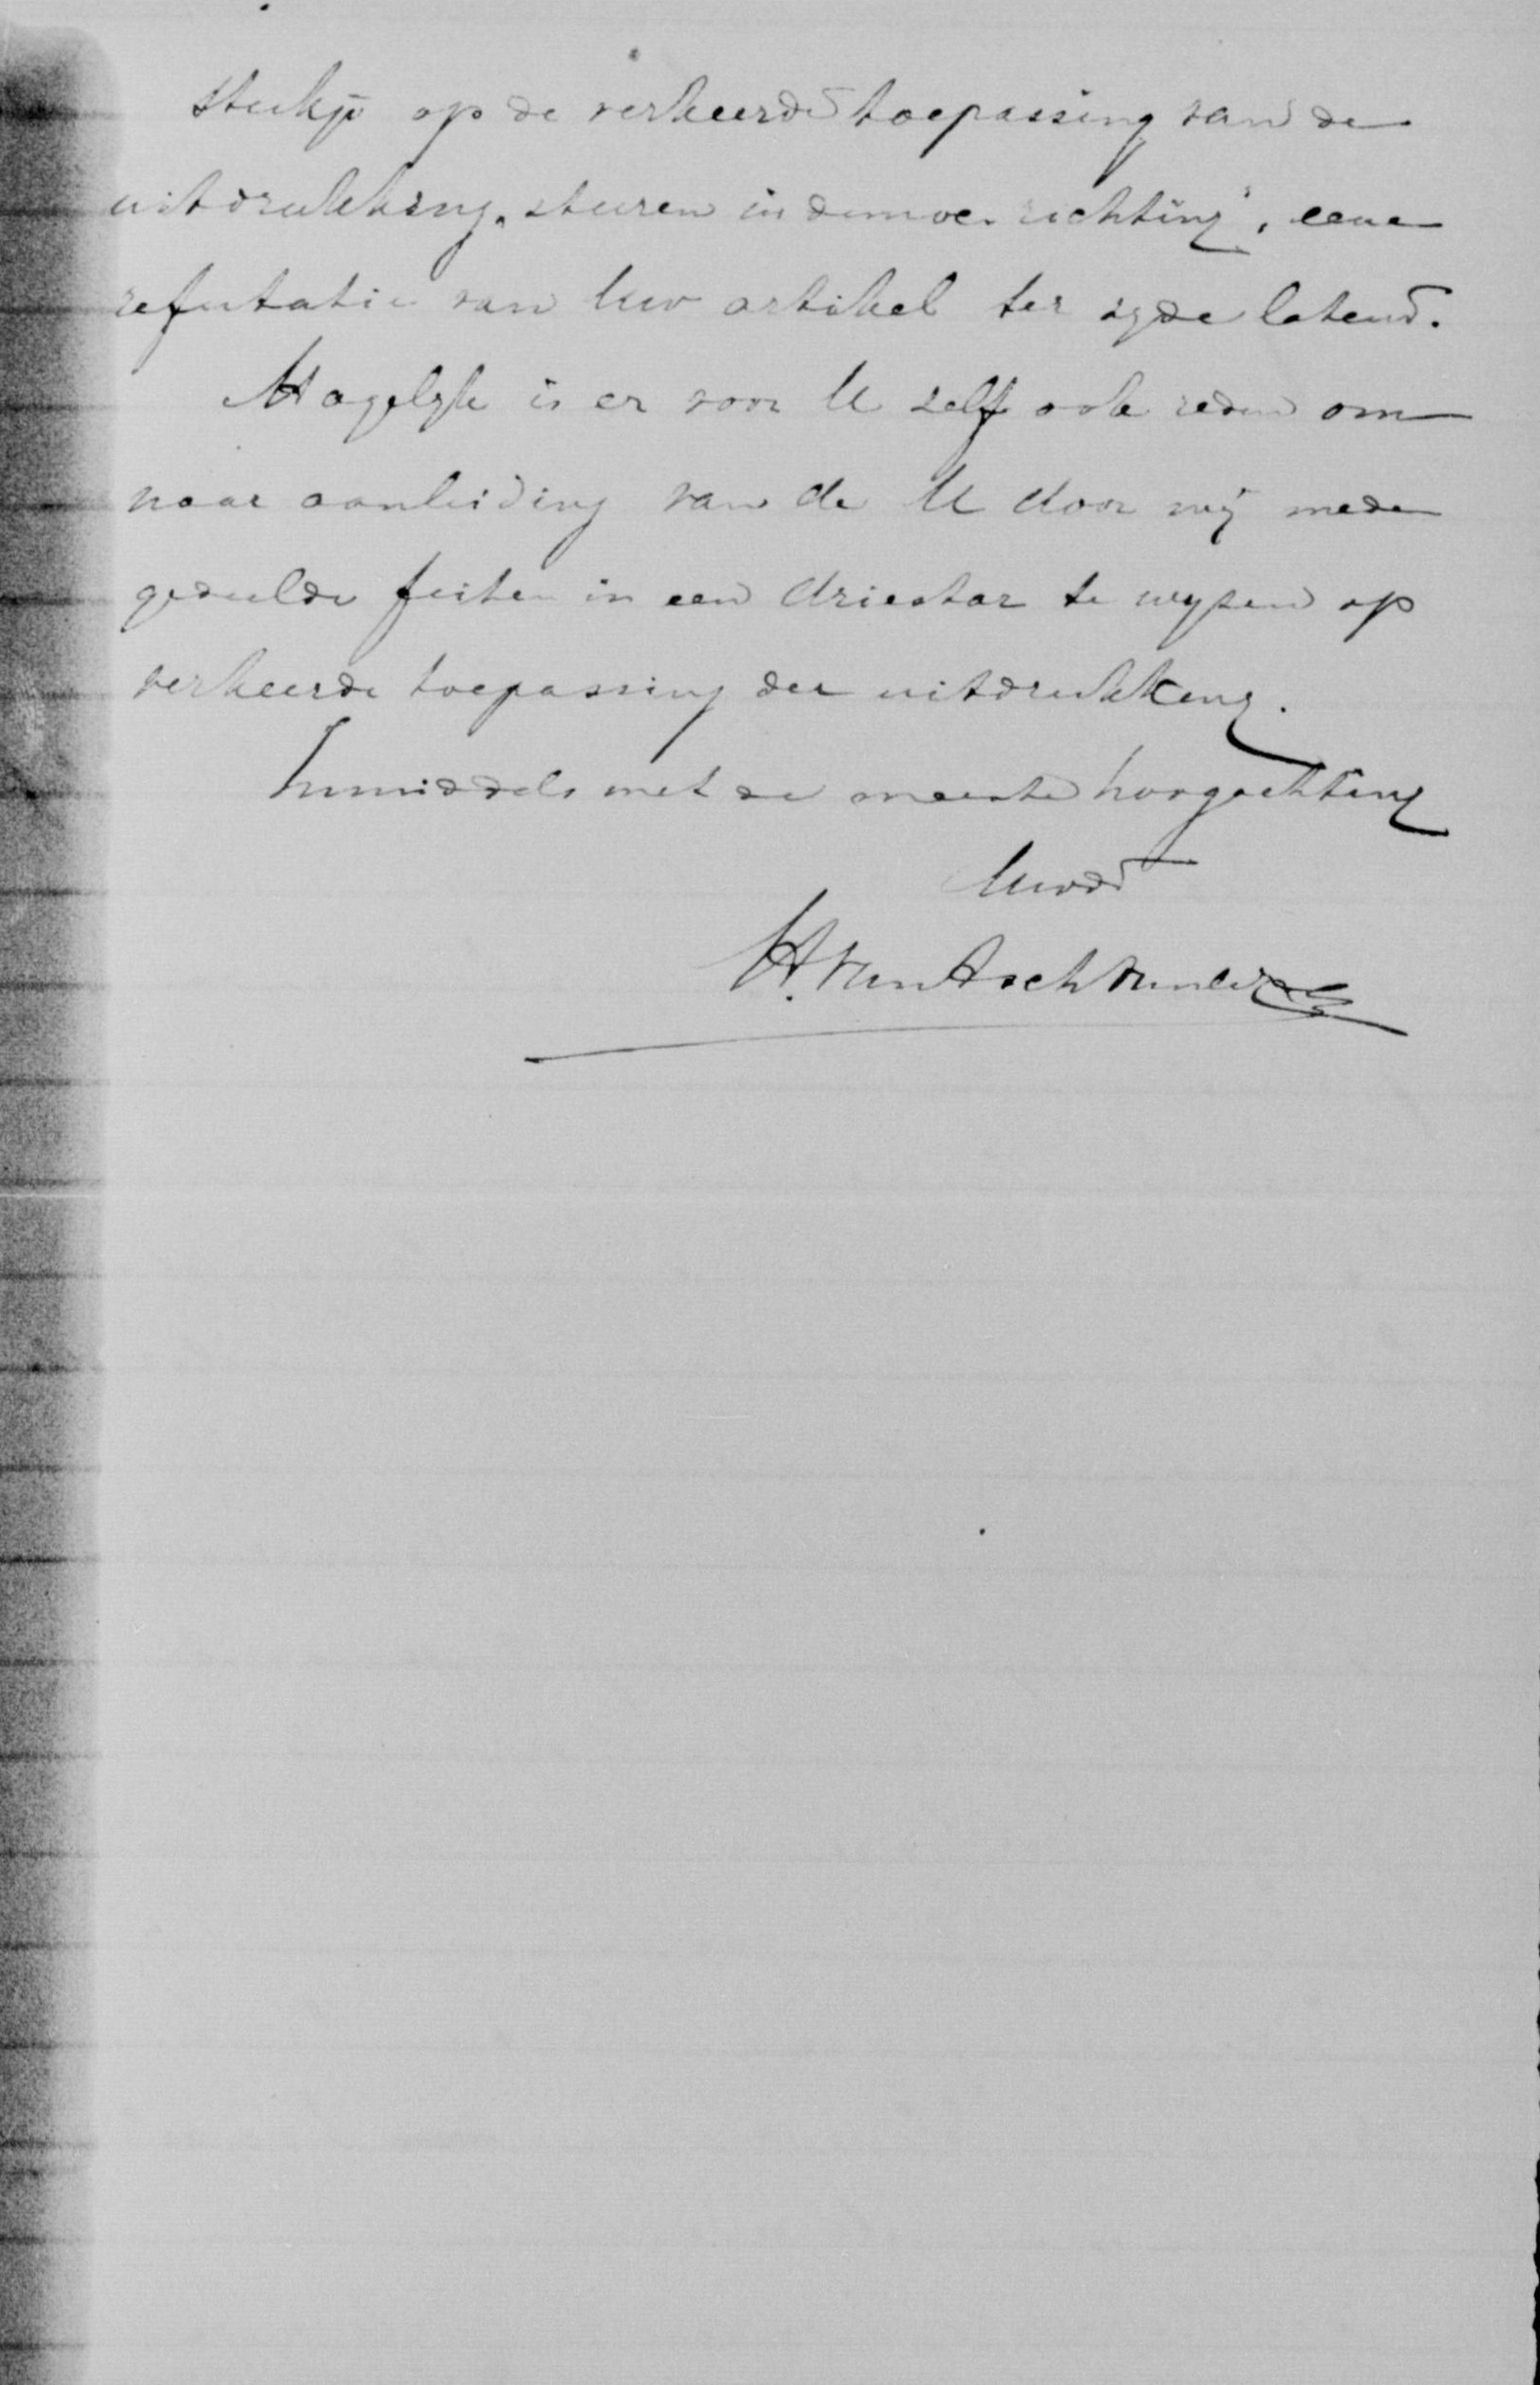 stukje op de verkeerde toepassing van de
uitdrukking „sturen in democ. richting", eene
refutatie van Uw artikel ter zyde latend.
Mogelyk is er voor U zelf ook reden om
naar aanleiding van de U door mij mede
gedeelde feiten in een driestar te wyzen op
verkeerde toepassing der uitdrukking.
Inmiddels met de meeste hoogachting
Uwdd
H. van Asch van Wijck